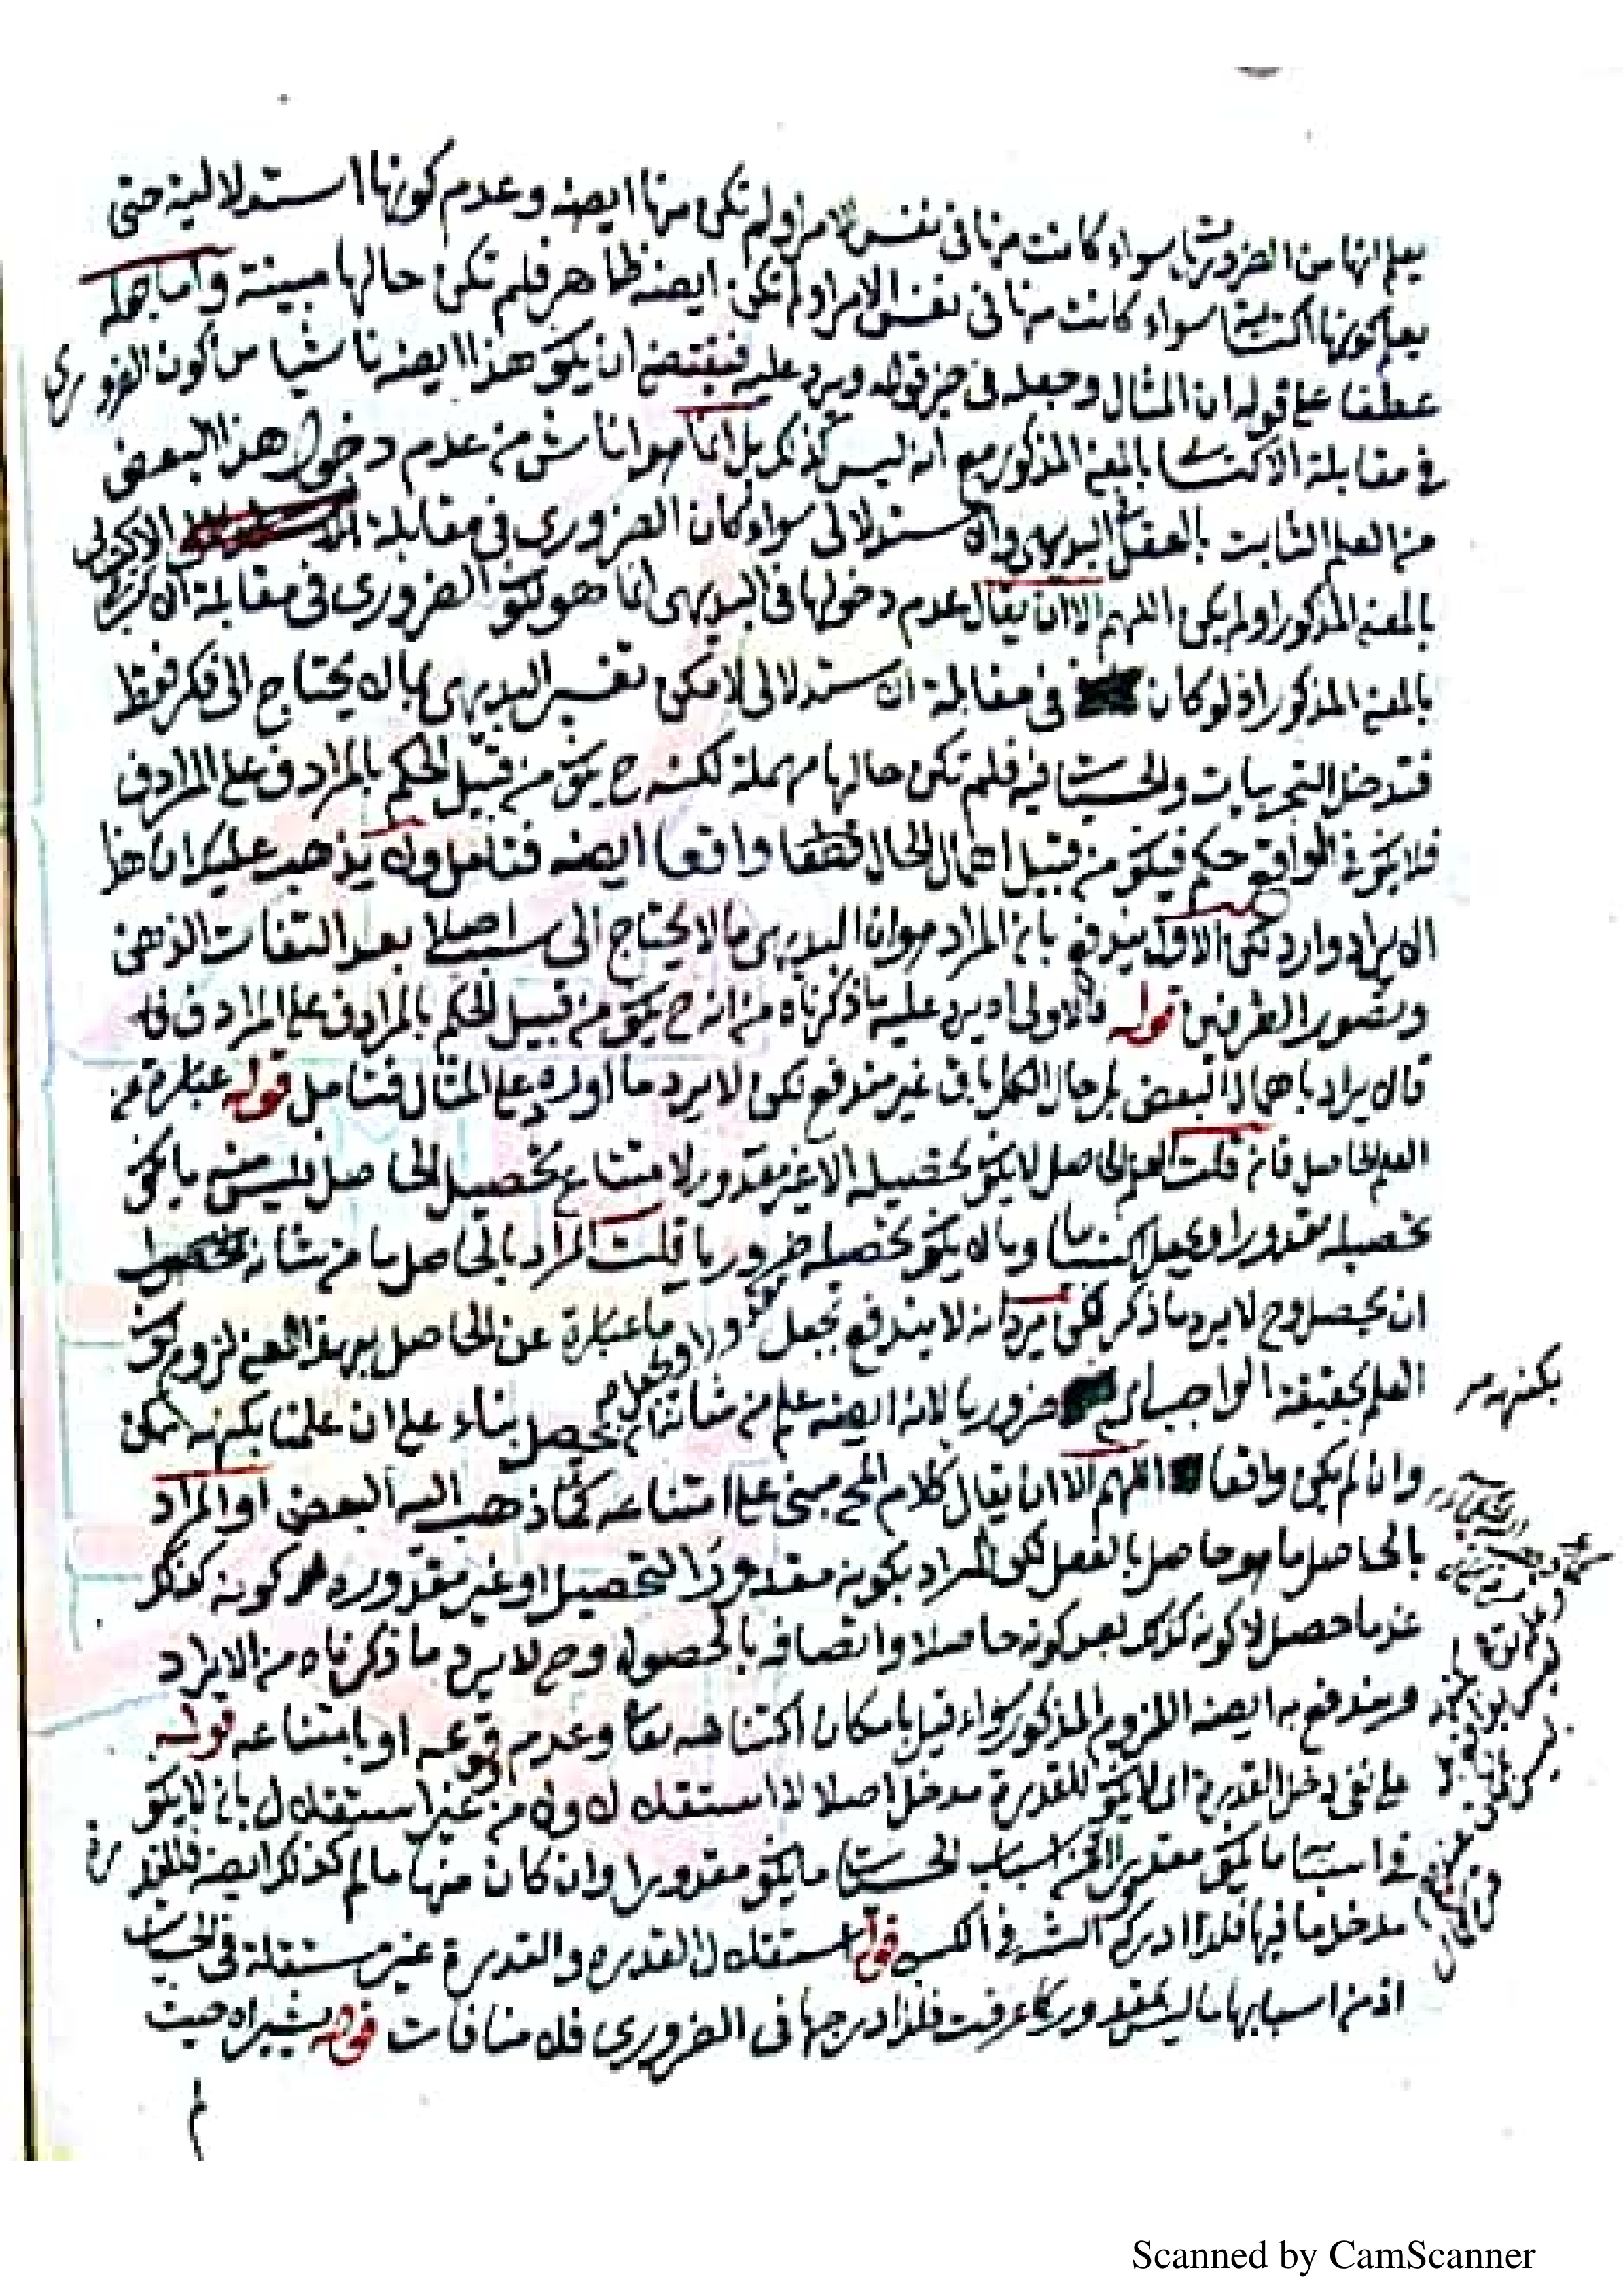 يعلم انها من الضروريات سواء كانت منها فى نفس الامر او لم تكن منها ايضه وعدم كونها استدلالية حتى
يعلم كونها اكتسابية سواء كانت منها فى نفس الامر او لم تكن ايضه ظاهر فلم تكن حالها مبينة واما جعله
عطفا على قوله ان المثال وجعله فى حيز قوله ويرد عليه فيقتضى ان يكون هذا ايضه ناشيا من كون الضرورى
فى مقابلة الاكتسابى بالمعنى المذكور مع انه ليس كذلك بل انما هو ناش من عدم دخول هذا البعض
من العلم الثابت بالعقل فى البديهى والاستدلالى سواء كان الضرورى فى مقابلة الاكتسابى
بالمعنى المذكور او لم يكن اللهم الا ان يقال عدم دخولها فى البديهى انما هو لكون الضرورى فى مقابلة الاكتسابى
بالمعنى المذكور اذ لو كان فى مقابلة الاستدلالى لامكن تفسير البديهى بما لا يحتاج الى فكر فقط
فتدخل التجربيات والحسيات فيه فلم تكن حالها مهملة لكنه ح يكون من قبيل الحكم بالمرادف على المرادف
فلا يكون فى الواقع حكم فيكون من قبيل اهمال الحال قطعا واقعا ايضه فتامل ولا يذهب عليك ان هذا
الايراد وارد لكن الاول يندفع بان المراد هو ان البديهى ما لا يحتاج الى سبب اصلا بعد التفات الذهن
وتصور الطرفين قوله فالاولى اه يرد عليه ما ذكرناه من انه ح يكون من قبيل الحكم بالمرادف على المرادف
فالايراد باهمال البعض لم حال الكل باق غير مندفع لكن لا يرد ما اورده على المثال فتامل قوله عبارة عن
العلم الحاصل فان قلت العلم الحاصل لا يكون تحصيله الا غير مقدور لامتناع تحصيل الحاصل فليس منه ما يكون
تحصيله مقدورا ويجعل اكتسابيا وما لا يكون تحصيله ضروريا قلت المراد بالحاصل ما من شانه
ان يحصل وح لا يرد ما ذكر لكن يرد انه لا يندفع بجعل ما عبارة عن الحاصل بهذا المعنى لزوم كون
العلم بحقيقة الواجب ضروريا لانه ايضه علم من شانه ان يحصل بناء على ان علمنا بكنهه ممكن
بكنهه صر
وان لم يكن واقعا اللهم الا ان يقال كلام المحشى مبنى على امتناعه كما ذهب اليه البعض او المراد
بالحاصل ما هو حاصل بالفعل لكن المراد بكونه مقدور التحصيل او غير مقدوره هو كونه كذلك
عند ما حصل لا كونه كذلك بعد كونه حاصلا واتصافه بالحصول وح لا يرد ما ذكرناه من الايراد
ويندفع به ايضه اللزوم المذكور سواء قيل بامكان اكتناهه تعا وعدم وقوعه او بامتناعه قوله
على نفى دخل القدرة اى لا يكون للقدرة مدخل اصلا لا استقلالا ولا من غير استقلال بان لا يكون
فى اسبابها ما يكون مقدورا لكن اسباب الحسيات ما يكون مقدورا وان كان منها ما لم كذلك ايضه فللقدرة
مدخل ما فيها فلذا ادركه الش فى الكسبى قوله استقلال القدرة والقدرة غير مستقلة فى الحسيات
اذ من اسبابها ما ليس بمقدور كما عرفت فلذا درجها فى الضرورى فلا منافات قوله يشير اه حيث
Scanned by CamScanner